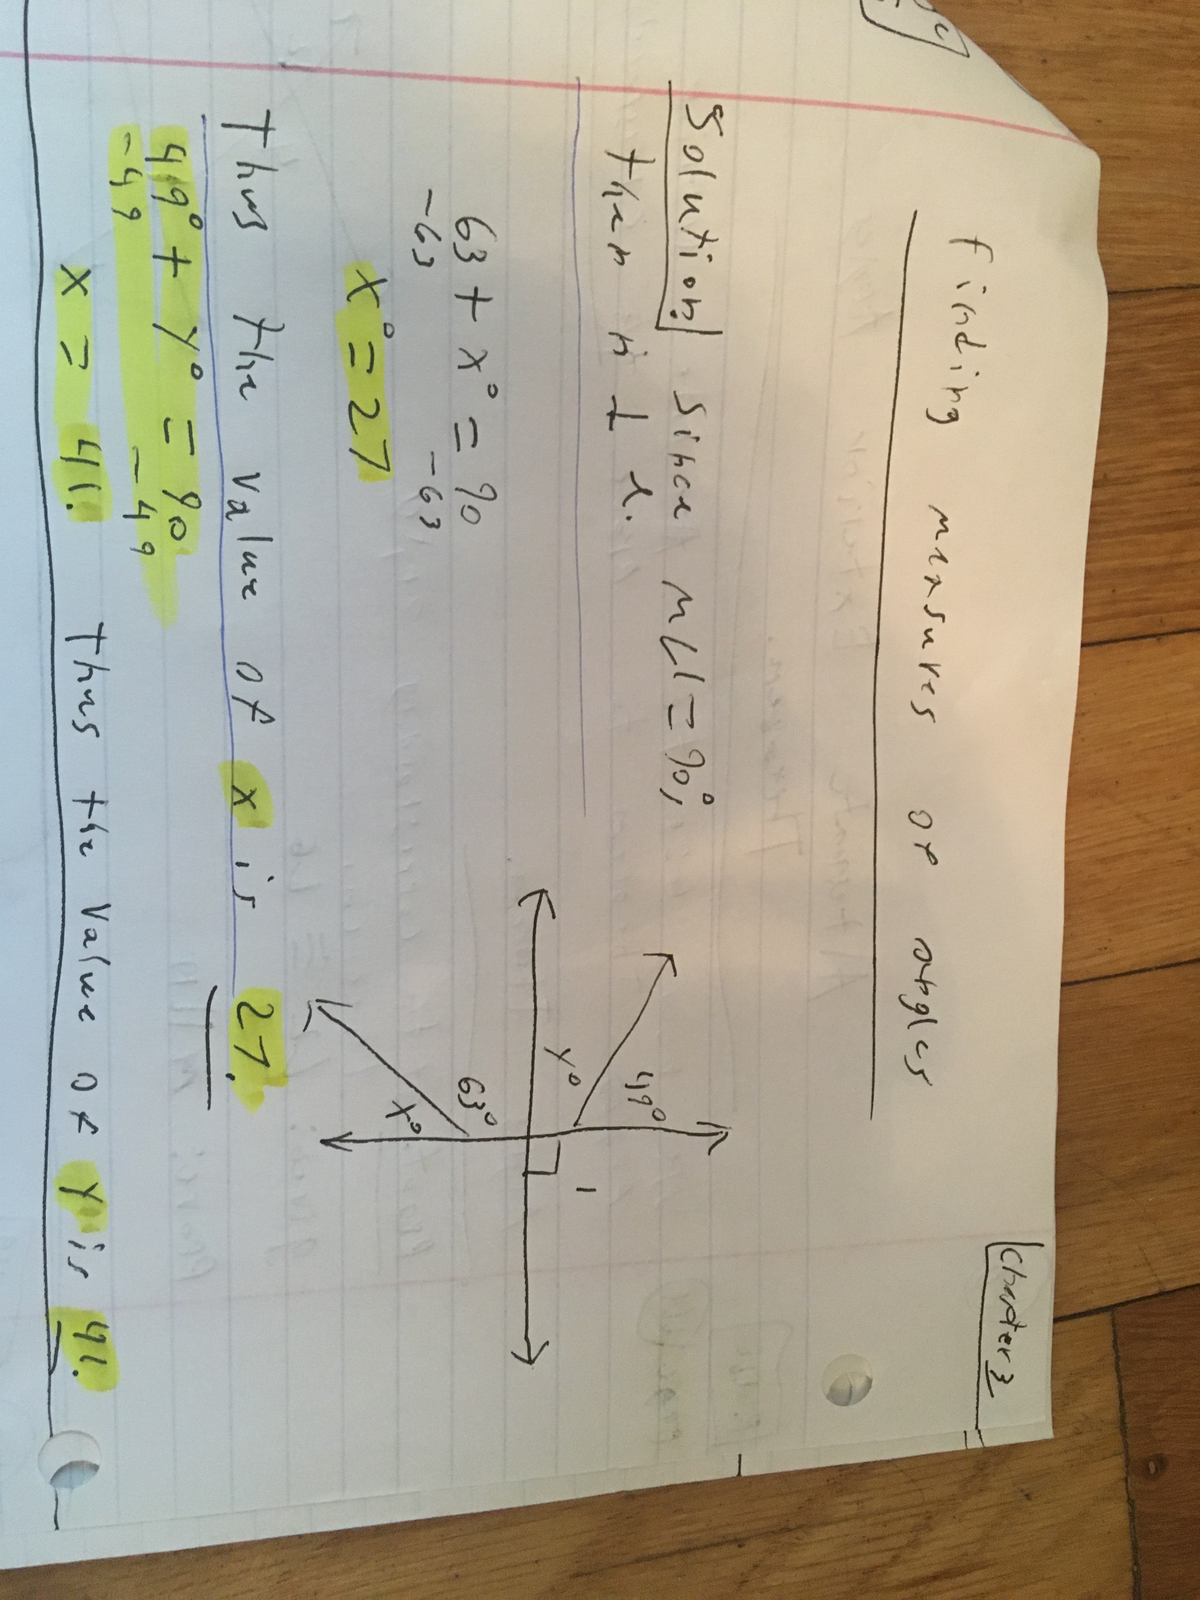 Chapter 3
Finding measures of angles
Solution: Since m∠1=90°,
then n ⊥ l.
63 + x° = 90
-63 -63
x° = 27
49°
y°
1
63°
x°
Thus the value of x is 27.
49° + y° = 90
-49 -49
x = 41. Thus the value of y is 41.